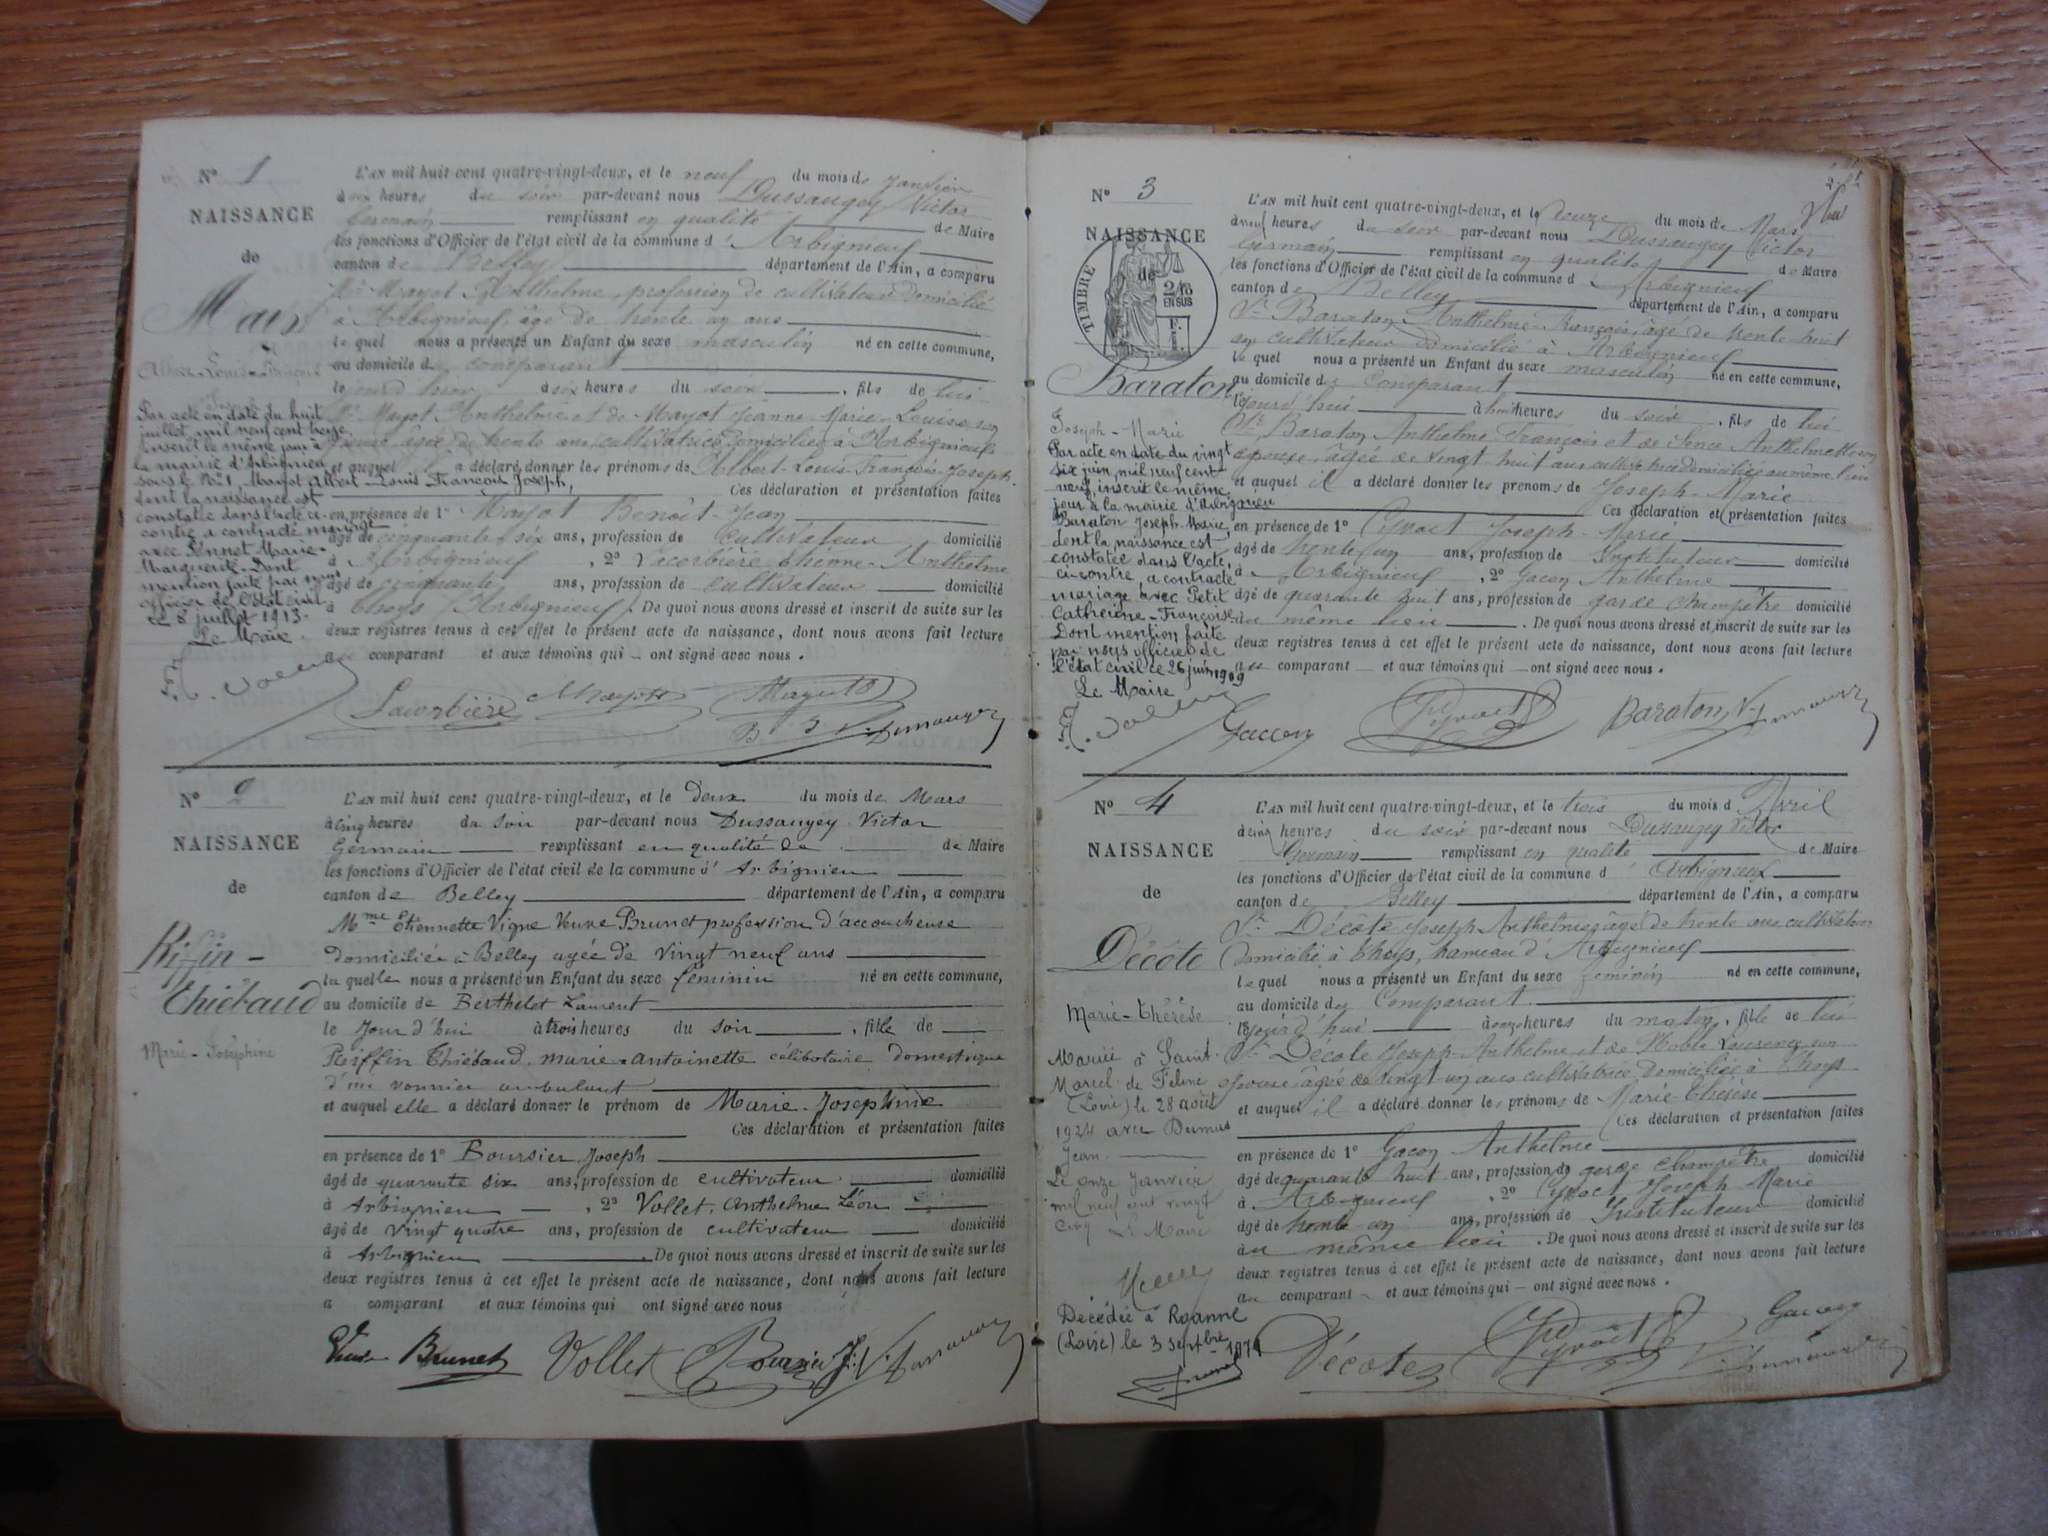 N° 1
NAISSANCE
de
L'AN mil huit cent quatre-vingt-deux, et le neuf du mois de Janvier
à six heures du soir par-devant nous Dussaugey Victor
Germain remplissant en qualité de Maire
les fonctions d'Officier de l'état civil de la commune d'Arbignieu
canton de Belley département de l'Ain, a comparu
Mr Mayot Anthelme profession de cultivateur domicilié
à Arbignieu, âgé de trente un ans
le quel nous a présenté un Enfant du sexe masculin né en cette commune,
au domicile du comparant
le jourd'hui à six heures du soir, fils de lui
Mr Mayot Anthelme et de Mayot Jeanne-Marie-Louise son
épouse âgée de trente ans cultivatrice domiciliée à Arbignieu
et auquel il a déclaré donner les prénoms de Albert-Louis-François-Joseph.
Ces déclaration et présentation faites
en présence de 1° Mayot Benoît-Jean
âgé de cinquante six ans, profession de cultivateur domicilié
à Arbignieu, 2° Lacorbière Etienne-Anthelme
âgé de cinquante ans, profession de cultivateur domicilié
à Thoys Arbignieu. De quoi nous avons dressé et inscrit de suite sur les
deux registres tenus à cet effet le présent acte de naissance, dont nous avons fait lecture
au comparant et aux témoins qui ont signé avec nous.
Par acte en date du huit
juillet mil neuf cent treize
inscrit le même jour à
la mairie d'Arbignieu
sous le N° 1, Mayot Albert Louis François Joseph,
dont la naissance est
constatée dans l'acte ci-
contre a contracté mariage
avec Pennet Marie-
Marguerite. Dont
mention faite par nous
officier de l'état civil
ce 8 juillet 1913.
Le Maire
Lacorbière
N° 2
NAISSANCE
de
Riffin-
Thiébaud
Marie-Joséphine
L'AN mil huit cent quatre-vingt-deux, et le deux du mois de Mars
à cinq heures du soir par-devant nous Dussaugey Victor
Germain remplissant en qualité de de Maire
les fonctions d'Officier de l'état civil de la commune d'Arbignieu
canton de Belley département de l'Ain, a comparu
Mme Etiennette Vigne Veuve Brunet profession d'accoucheuse
domiciliée à Belley agée de vingt neuf ans
la quelle nous a présenté un Enfant du sexe feminin né en cette commune,
au domicile de Berthelot Laurent
le Jour d'hui à trois heures du soir, fille de
Reiffin Thiébaud marie-antoinette célibataire domestique
d'un vannier ambulant
et auquel elle a déclaré donner le prénom de Marie-Joséphine
Ces déclaration et présentation faites
en présence de 1° Boursier Joseph
âgé de quarante six ans, profession de cultivateur domicilié
à Arbignieu, 2° Vollet Anthelme Léon
âgé de vingt quatre ans, profession de cultivateur domicilié
à Arbignieu. De quoi nous avons dressé et inscrit de suite sur les
deux registres tenus à cet effet le présent acte de naissance, dont nous avons fait lecture
a comparant et aux témoins qui ont signé avec nous
Brunet Vollet
N° 3
NAISSANCE
de
TIMBRE
EN SUS
Baraton
Joseph-Marie
L'AN mil huit cent quatre-vingt-deux, et le du mois de Mars
à neuf heures du soir par-devant nous Dussaugey Victor
Germain remplissant en qualité de Maire
les fonctions d'Officier de l'état civil de la commune d'Arbignieu
canton de Belley département de l'Ain, a comparu
Sr Baraton Anthelme-François, âgé de trente huit
ans cultivateur domicilié à Arbignieu
le quel nous a présenté un Enfant du sexe masculin né en cette commune,
au domicile du comparant
le jourd'hui à huit heures du soir, fils de lui
Baraton Anthelme François et de Anthelmette son
épouse, âgée de vingt huit ans cultivatrice domiciliée au même lieu
et auquel il a déclaré donner les prénoms de Joseph-Marie
Ces déclaration et présentation faites
en présence de 1° Joseph-Marie
âgé de trente un ans, profession de Instituteur domicilié
à Arbignieu, 2° Gacon Anthelme
âgé de quarante huit ans, profession de garde champêtre domicilié
au même lieu. De quoi nous avons dressé et inscrit de suite sur les
deux registres tenus à cet effet le présent acte de naissance, dont nous avons fait lecture
au comparant et aux témoins qui ont signé avec nous.
Par acte en date du vingt
six juin, mil neuf cent
neuf, inscrit le même
jour à la mairie d'Arbignieu
Baraton Joseph Marie,
dont la naissance est
constatée dans l'acte,
ci-contre, a contracté
mariage avec Petit
Catherine-Françoise
Dont mention faite
par nous officier de
l'état civil ce 26 juin 1909
Le Maire
Baraton
N° 4
NAISSANCE
de
Décôte
Marie-Thérèse
L'AN mil huit cent quatre-vingt-deux, et le trois du mois d'Avril
à cinq heures du soir par-devant nous Dussaugey Victor
Germain remplissant en qualité de Maire
les fonctions d'Officier de l'état civil de la commune d'Arbignieu
canton de Belley département de l'Ain, a comparu
Sr Décôte Joseph Anthelme, âgé de trente ans cultivateur
domicilié à Thoys, hameau d'Arbignieu
le quel nous a présenté un Enfant du sexe féminin né en cette commune,
au domicile du Comparant.
le jour d'hui à onze heures du matin, fille de lui
Sr Décôte Joseph-Anthelme et de son
épouse, âgée de vingt un ans cultivatrice domiciliée à Thoys
et auquel il a déclaré donner les prénoms de Marie-Thérèse
Ces déclaration et présentation faites
en présence de 1° Gacon Anthelme
âgé de quarante huit ans, profession de garde champêtre domicilié
à Arbignieu, 2° Joseph Marie
âgé de trente un ans, profession de Instituteur domicilié
au même lieu. De quoi nous avons dressé et inscrit de suite sur les
deux registres tenus à cet effet le présent acte de naissance, dont nous avons fait lecture
au comparant et aux témoins qui ont signé avec nous.
Mariée à Saint-
Marcel de Féline
(Loire) le 28 août
1924 avec Dumas
Jean.
Le onze Janvier
mil neuf cent vingt
cinq Le Maire
Décédée à Roanne
(Loire) le 3 septbre
Décote